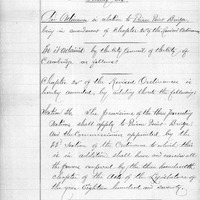 An Ordinance in relation to River Street Bridge
being in amendment of Chapter 25 of the Revised Ordinances
Be it Ordained by the City Council of the City of
Cambridge as follows:
Chapter 25 of the Revised Ordinances is
hereby amended, by adding thereto the following:
Section The provisions of the three preceding
sections shall apply to River Street Bridge
and the Commissioners appointed by the
Section of the Ordinance to which this
is in addition shall have and exercise all
the power conferred by the three hundredth
chapter of the Acts of the Legislature of
the year Eighteen hundred and seventy.